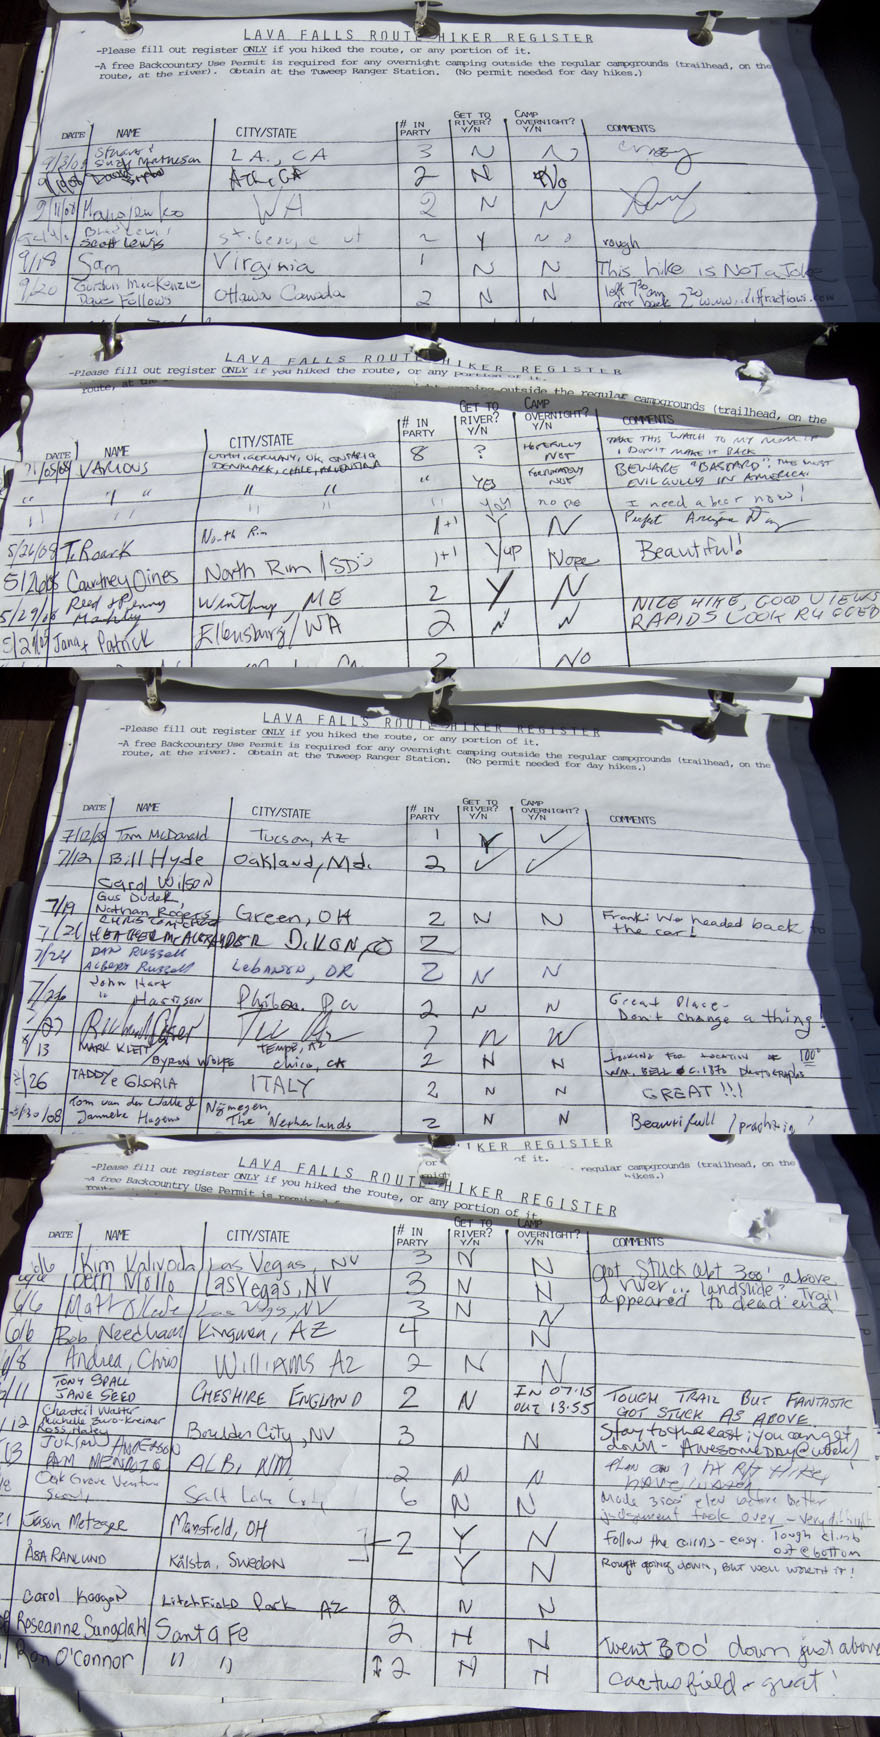 LAVA FALLS ROUTE HIKER REGISTER
-Please fill out register ONLY if you hiked the route, or any portion of it.
-A free Backcountry Use Permit is required for any overnight camping outside the regular campgrounds (trailhead, on the
route, at the river). Obtain at the Tuweep Ranger Station. (No permit needed for day hikes.)
DATE NAME CITY/STATE # IN PARTY GET TO RIVER? Y/N CAMP OVERNIGHT? Y/N COMMENTS
9/3/08 Suzy Matheson L.A., CA 3 N N
2 N No
9/11/08 WA 2 N N
Scott Lewis 2 Y rough
9/18 Sam Virginia 1 N N This hike is NOT a Joke
9/20 Gordon MacKenzie Ottawa Canada 2 N N left 7:30 am
Dave Fellows arr back 2:30 www.diffractions.com
LAVA FALLS ROUTE HIKER REGISTER
-Please fill out register ONLY if you hiked the route, or any portion of it.
route, at the outside the regular campgrounds (trailhead, on the
DATE NAME CITY/STATE # IN PARTY GET TO RIVER? Y/N CAMP OVERNIGHT? Y/N COMMENTS
VARIOUS GERMANY, UK, ONTARIO 8 ? HOPEFULLY NOT TAKE THIS WATCH TO MY MOM IF
DENMARK, CHILE, ARGENTINA I DON'T MAKE IT BACK
" " " " " " YES FORTUNATELY NOT BEWARE "BASTARD": THE MOST
EVIL GULLY IN AMERICA!
" " " " yay nope I need a beer now!
5/26/08 T. Roark North Rim 1+1 Y N Perfect Arizona Day
5/26/08 Courtney Oines North Rim / SD 1+1 Yup Nope Beautiful!
5/29/08 Reed + Penny Winthrop, ME 2 Y N NICE HIKE, GOOD VIEWS
Jana + Patrick Ellensburg/WA 2 N N RAPIDS LOOK RUGGED
2 NO
LAVA FALLS ROUTE HIKER REGISTER
-Please fill out register ONLY if you hiked the route, or any portion of it.
-A free Backcountry Use Permit is required for any overnight camping outside the regular campgrounds (trailhead, on the
route, at the river). Obtain at the Tuweep Ranger Station. (No permit needed for day hikes.)
DATE NAME CITY/STATE # IN PARTY GET TO RIVER? Y/N CAMP OVERNIGHT? Y/N COMMENTS
7/12/08 Tom McDonald Tucson, AZ 1 Y ✓
7/12 Bill Hyde Oakland, Md. 2 ✓ ✓
Carol Wilson
Gus Dudek,
7/19 Nathan Rogers Green, OH 2 N N Franki We headed back to
the car!
7/21 HEATHER McALEXANDER DILLON, CO 2
7/24 DAN Russell
Albert Russell Lebanon, OR 2 N N
7/26 John Hart
" Harrison Phila. Pa 2 N N Great Place-
Don't change a thing!
Richard N
8/13 MARK KLETT TEMPE, AZ 2 N N LOOKING FOR LOCATION OF
BYRON WOLFE Chico, CA WM. BELL C. 1870 PHOTOGRAPHS
/26 TADDY e GLORIA ITALY 2 N N GREAT!!!
/30/08 Tom van der Walle & Nijmegen,
Janneke The Netherlands 2 N N Beautifull / prachtig!
LAVA FALLS ROUTE HIKER REGISTER
IKER REGISTER
of it.
-Please fill out register ONLY if you hiked the route, or any portion of it
regular campgrounds (trailhead, on the
-A free Backcountry Use Permit is
hikes.)
DATE NAME CITY/STATE # IN PARTY GET TO RIVER? Y/N CAMP OVERNIGHT? Y/N COMMENTS
6/6 Kim Kalivoda Las Vegas, NV 3 N N Got stuck abt 300' above
Mollo Las Vegas, NV 3 N N river... landslide? Trail
6/6 Matt Las Vegas, NV 3 N N appeared to dead end
6/6 Bob Needham Kingman, AZ 4 N
6/8 Andrea, Chris Williams AZ 2 N N
/11 TONY SPALL
JANE SEED CHESHIRE ENGLAND 2 N IN 07.15 OUT 13.55 TOUGH TRAIL BUT FANTASTIC
GOT STUCK AS ABOVE.
/12 Chantell Walter
Michelle Zuro-Kreimer
Ross Haley Boulder City, NV 3 N Stay to the east; you can get
down- Awesome Day
/13 JULIAN ANDERSON
PAM MENDOZA ALB, NM 2 N N Plan on 7 hr R/T Hike,
Oak Grove Venture Salt Lake City 6 N N Made 3500' elev before better
judgement took over - very difficult
Jason Metzger Mansfield, OH 2 Y N Follow the cairns - easy. Tough climb
out @ bottom
ÅSA RANLUND Kälsta, Sweden Y N Rough going down, but well worth it!
Carol Litchfield Park AZ 2 N N
Roseanne Sungdahl Santa Fe 2 N N Went 300' down just above
Ron O'Connor " " 2 N N Cactus field - great!